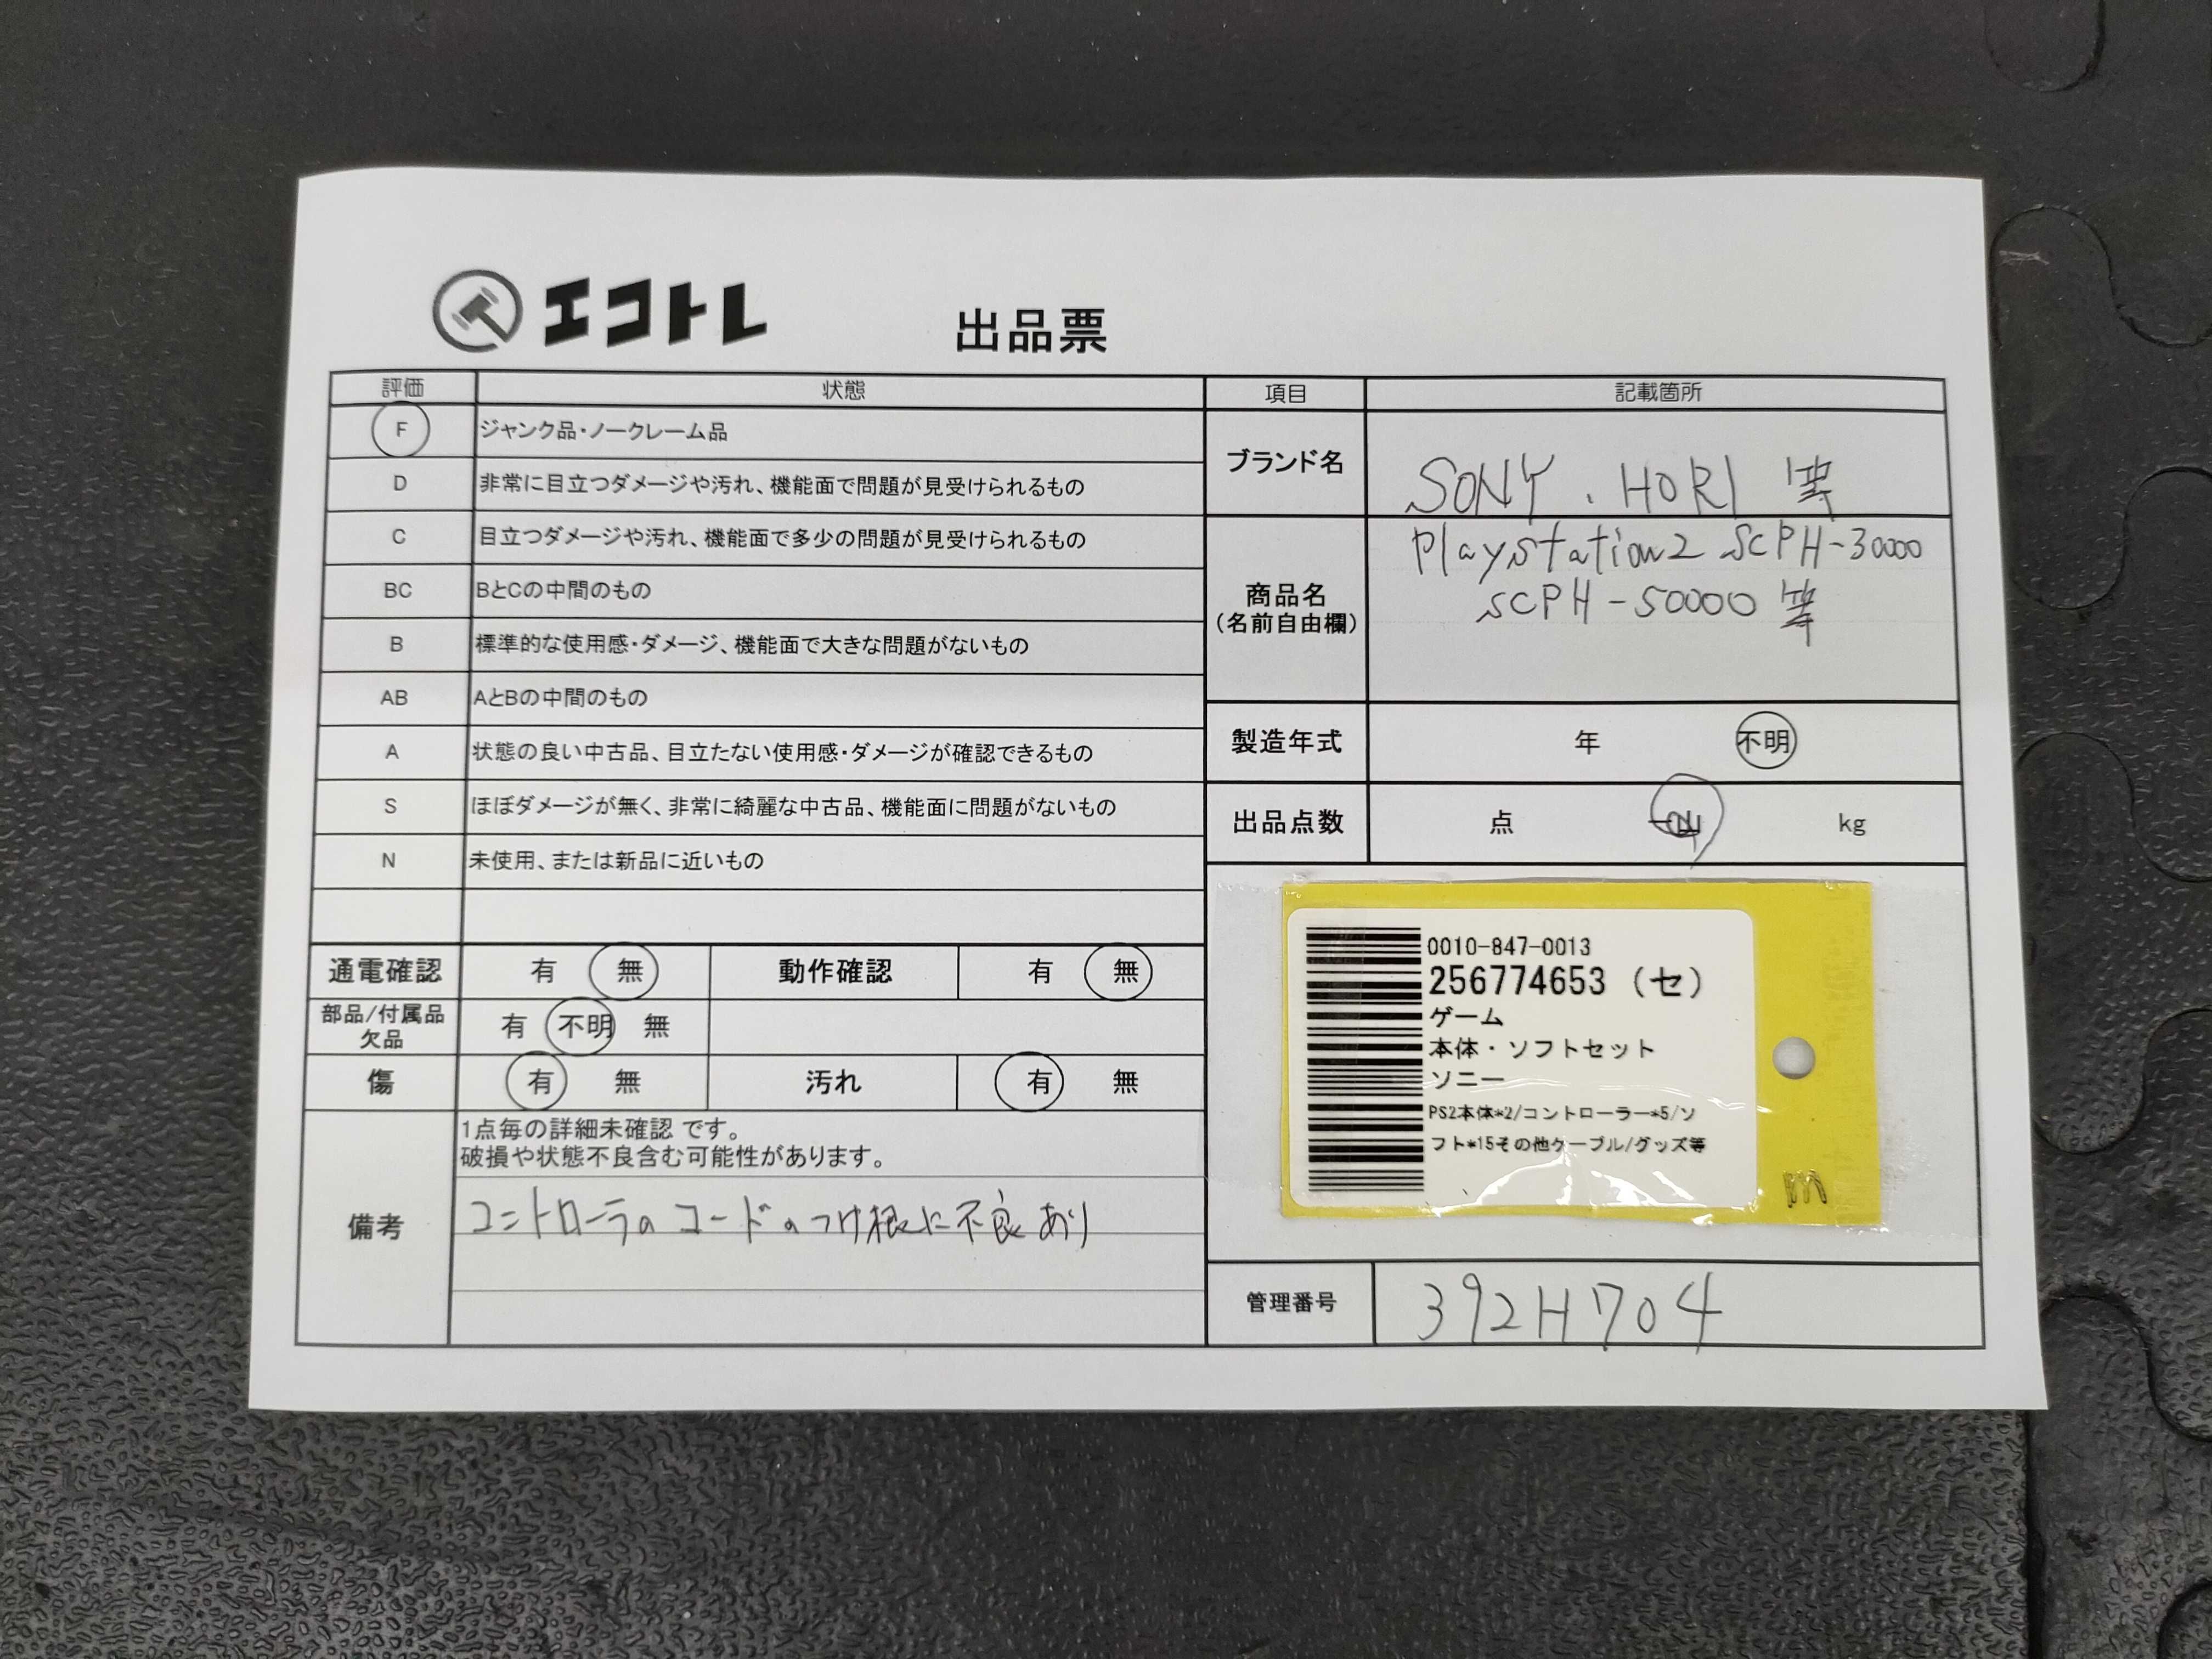 エコトレ
出品票
評価 状態
F ジャンク品・ノークレーム品
D 非常に目立つダメージや汚れ、機能面で問題が見受けられるもの
C 目立つダメージや汚れ、機能面で多少の問題が見受けられるもの
BC BとCの中間のもの
B 標準的な使用感・ダメージ、機能面で大きな問題がないもの
AB AとBの中間のもの
A 状態の良い中古品、目立たない使用感・ダメージが確認できるもの
S ほぼダメージが無く、非常に綺麗な中古品、機能面に問題がないもの
N 未使用、または新品に近いもの
通電確認 有 無 動作確認 有 無
部品/付属品
欠品
有 不明 無
傷 有 無 汚れ 有 無
備考
1点毎の詳細未確認 です。
破損や状態不良含む可能性があります。
コントローラのコードのつけ根に不良あり
項目 記載箇所
ブランド名 SONY、HORI 等
商品名
(名前自由欄)
Playstation2 SCPH-30000
SCPH-50000 等
製造年式 年 不明
出品点数 点 一山 kg
0010-847-0013
256774653 (セ)
ゲーム
本体・ソフトセット
ソニー
PS2本体*2/コントローラー*5/ソ
フト*15その他ケーブル/グッズ等
m
管理番号 392H704